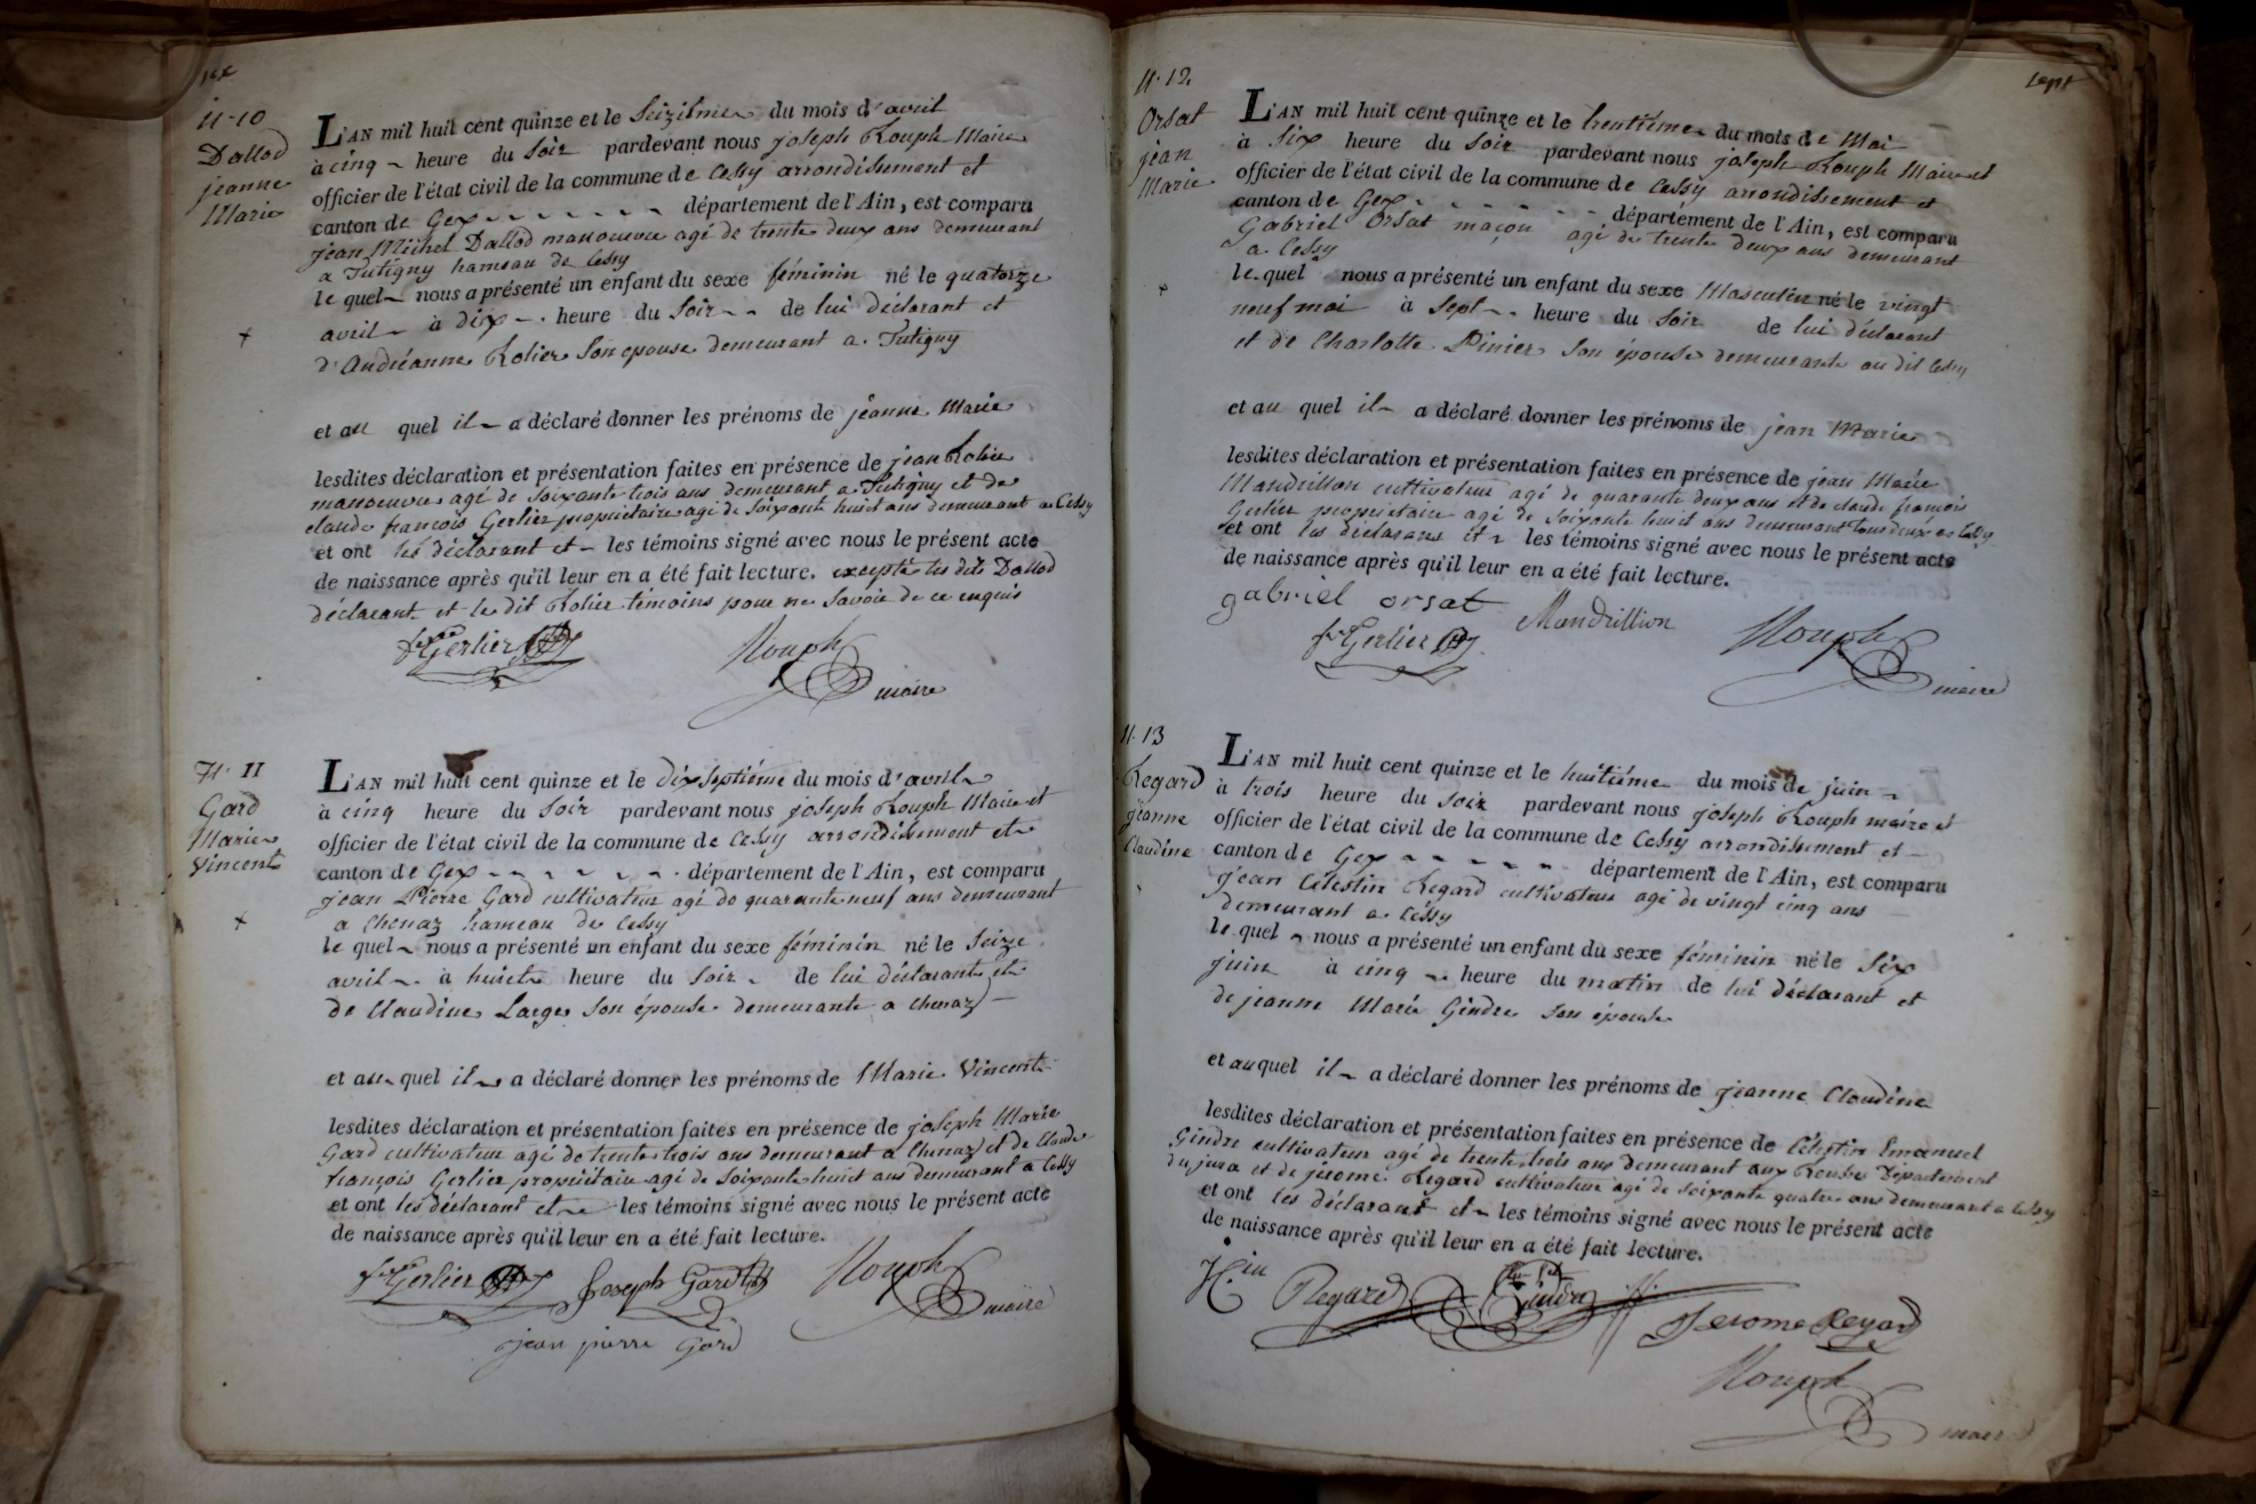 six
N. 10
Dallod
jeanne
Marie
L'AN mil huit cent quinze et le Seizième du mois d'avril
à cinq heure du Soir pardevant nous joseph Rouph Maire
officier de l'état civil de la commune de Cessy arrondissement et
canton de Gex département de l'Ain, est comparu
jean Michel Dallod manoeuvre agé de trente deux ans demeurant
a Tutigny hameau de Cessy
le quel nous a présenté un enfant du sexe féminin né le quatorze
avril à dix heure du Soir de lui déclarant et
d'Andréanne Rolier Son epouse demeurant a Tutigny
et au quel il a déclaré donner les prénoms de jeanne Marie
lesdites déclaration et présentation faites en présence de jean Rolier
manoeuvre agé de Soixante trois ans demeurant a Tutigny et de
claude françois Gerlier propriétaire agé de Soixante huict ans demeurant a Cessy
et ont les déclarant et les témoins signé avec nous le présent acte
de naissance après qu'il leur en a été fait lecture. excepté les dits Dallod
déclarant et le dit Rolier témoins pour ne Savoir de ce enquis
fçois Gerlier Rouph
maire
N. 11
Gard
Marie
Vincent
L'AN mil huit cent quinze et le dix Septiéme du mois d'avril
à cinq heure du Soir pardevant nous joseph Rouph Maire et
officier de l'état civil de la commune de Cessy arrondissement et
canton de Gex département de l'Ain, est comparu
jean Pierre Gard cultivateur agé de quarante neuf ans demeurant
a Chenaz hameau de Cessy
le quel nous a présenté un enfant du sexe féminin né le Seize
avril à huict heure du Soir de lui déclarant et
de Claudine Large Son épouse demeurante a Chenaz
et au quel il a déclaré donner les prénoms de Marie Vincent
lesdites déclaration et présentation faites en présence de joseph Marie
Gard cultivateur agé de trente trois ans demeurant a Chenaz et de Claude
françois Gerlier propriétaire agé de Soixante huict ans demeurant a Cessy
et ont les déclarant et les témoins signé avec nous le présent acte
de naissance après qu'il leur en a été fait lecture.
fçois Gerlier Joseph Gard Rouph
maire
jean pierre Gard
Sept
N. 12
Orsat
jean
Marie
L'AN mil huit cent quinze et le trentiéme du mois de Mai
à Six heure du Soir pardevant nous joseph Rouph Maire et
officier de l'état civil de la commune de Cessy arrondissement et
canton de Gex département de l'Ain, est comparu
Gabriel Orsat maçon agé de trente deux ans demeurant
a Cessy
le quel nous a présenté un enfant du sexe Masculin né le vingt
neuf mai à Sept heure du Soir de lui déclarant
et de Charlotte Pinier Son épouse demeurante au dit Cessy
et au quel il a déclaré donner les prénoms de jean Marie
lesdites déclaration et présentation faites en présence de jean Marie
Mandrillon cultivateur agé de quarante deux ans et de claude françois
Gerlier propriétaire agé de Soixante huict ans demeurant tous deux a Cessy
et ont les déclarans et les témoins signé avec nous le présent acte
de naissance après qu'il leur en a été fait lecture.
gabriel orsat Mandrillion
fçois Gerlier Rouph
maire
N. 13
Regard
jeanne
Claudine
L'AN mil huit cent quinze et le huitiéme du mois de juin
à trois heure du Soir pardevant nous joseph Rouph maire et
officier de l'état civil de la commune de Cessy arrondissement et
canton de Gex département de l'Ain, est comparu
jean Célestin Regard cultivateur agé de vingt cinq ans
demeurant a Cessy
le quel nous a présenté un enfant du sexe féminin né le Six
juin à cinq heure du matin de lui déclarant et
de jeanne Marie Gindre Son épouse
et au quel il a déclaré donner les prénoms de jeanne Claudine
lesdites déclaration et présentation faites en présence de Célestin Emanuel
Gindre cultivateur agé de trente trois ans demeurant aux Rousses Département
du jura et de jérome Regard cultivateur agé de Soixante quatre ans demeurant a Cessy
et ont les déclarant et les témoins signé avec nous le présent acte
de naissance après qu'il leur en a été fait lecture.
Regard Gindre
Jerome Regard
Rouph
maire